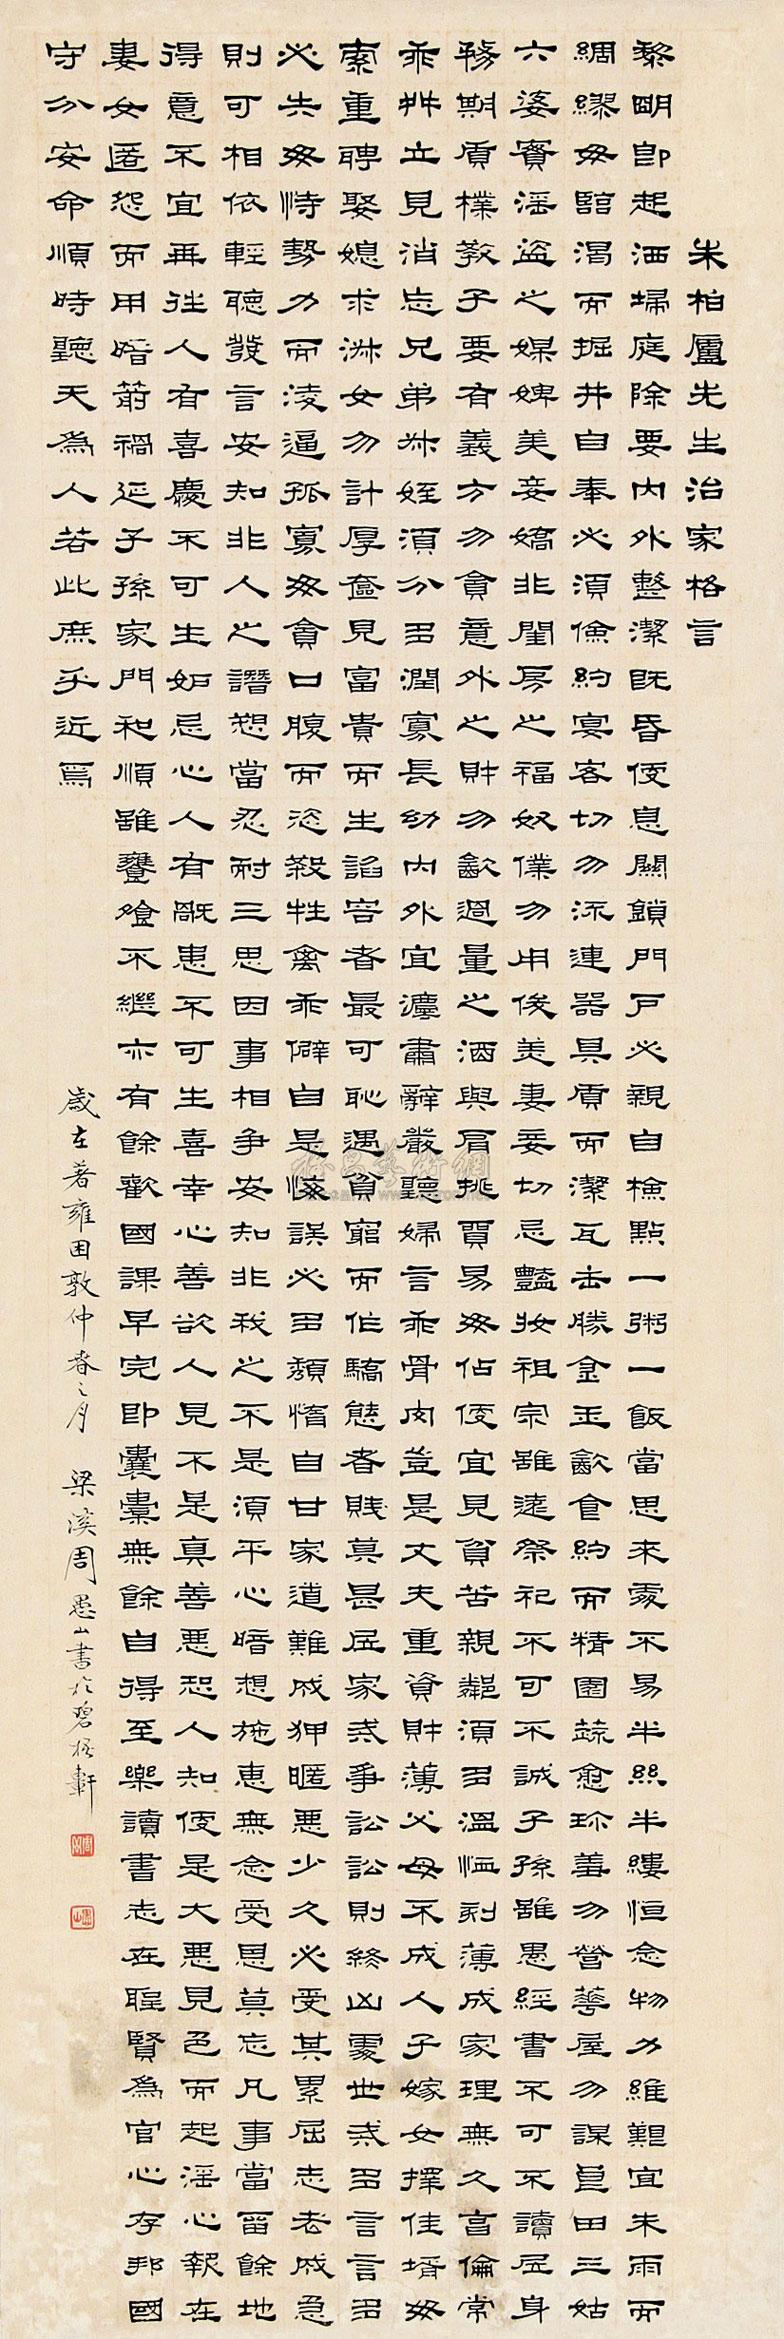 朱柏廬先生治家格言
黎明即起洒埽庭除要內外整潔既昏便息關鎖門戶必親自檢點一粥一飯當思来處不易半絲半縷恒念物力維艱宜未雨而
綢繆毋臨渴而掘井自奉必須儉約宴客切勿流連器具質而潔瓦缶勝金玉飲食約而精園蔬愈珍羞勿營華屋勿謀良田三姑
六婆實淫盜之媒婢美妾嬌非閨房之福奴僕勿用俊美妻妾切忌豔妝祖宗雖遠祭祀不可不誠子孫雖愚經書不可不讀居身
務期質樸教子要有義方勿貪意外之財勿飲過量之酒與肩挑貿易毋佔便宜見貧苦親鄰須多溫恤刻薄成家理無久享倫常
乖舛立見消亡兄弟叔姪須分多潤寡長幼內外宜法肅辭嚴聽婦言乖骨肉豈是丈夫重資財薄父母不成人子嫁女擇佳壻毋
索重聘娶媳求淑女勿計厚奩見富貴而生諂容者最可恥遇貧窮而作驕態者賤莫甚居家戒爭訟訟則終凶處世戒多言言多
必失毋恃勢力而凌逼孤寡毋貪口腹而恣殺牲禽乖僻自是悔誤必多頹惰自甘家道難成狎暱惡少久必受其累屈志老成急
則可相依輕聽發言安知非人之譖愬當忍耐三思因事相爭安知非我之不是須平心暗想施惠無念受恩莫忘凡事當留餘地
得意不宜再往人有喜慶不可生妒忌心人有禍患不可生喜幸心善欲人見不是真善惡恐人知便是大惡見色而起淫心報在
妻女匿怨而用暗箭禍延子孫家門和順雖饔飧不繼亦有餘歡國課早完即囊橐無餘自得至樂讀書志在聖賢為官心存邦國
守分安命順時聽天為人若此庶乎近焉
歲在著雍困敦仲春之月 梁溪周愚山書於碧梧軒